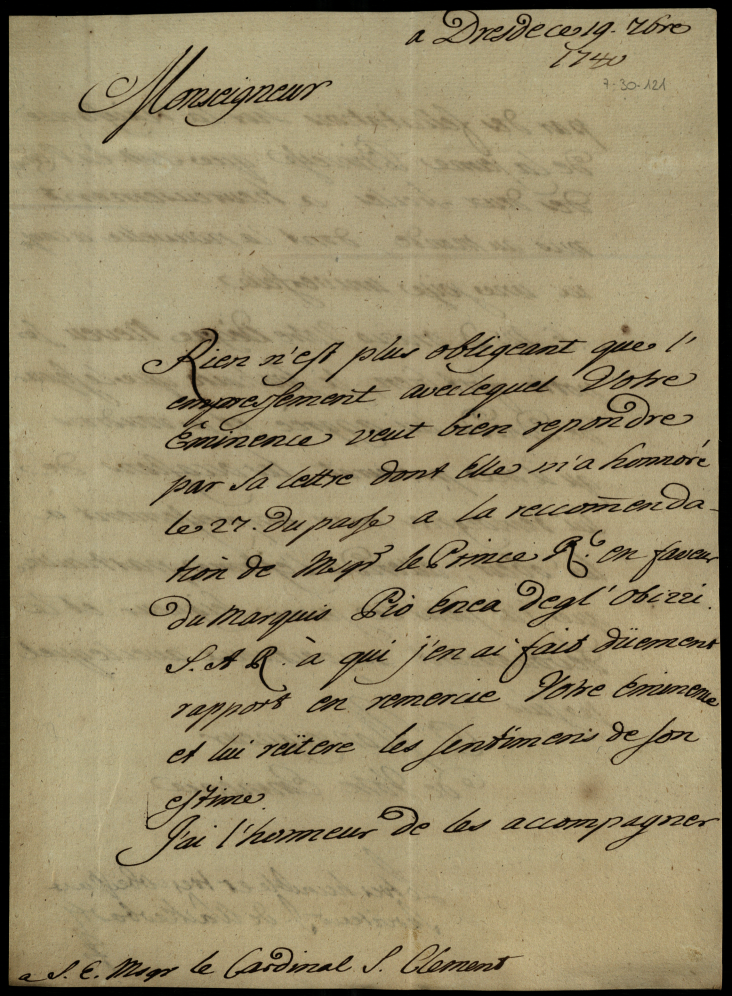 a Dresde ce 19. 7bre
1740
7-30-121
Monseigneur
Rien n'est plus obligeant que l'
empressement avec lequel Votre
Eminence veut bien repondre
par sa lettre dont Elle m'a honnoré
le 27. du passe a la reccom̅enda-
tion de Msgr le Prince Rl. en faveur
du Marquis Pio Enea degl' Obizzi.
S. A R. à qui j'en ai fait düement
rapport en remercie Votre Eminence
et lui reïtere les sentimens de son
estime.
J'ai l'honneur de les accompagner
a S. E. Msgr le Cardinal S. Clement